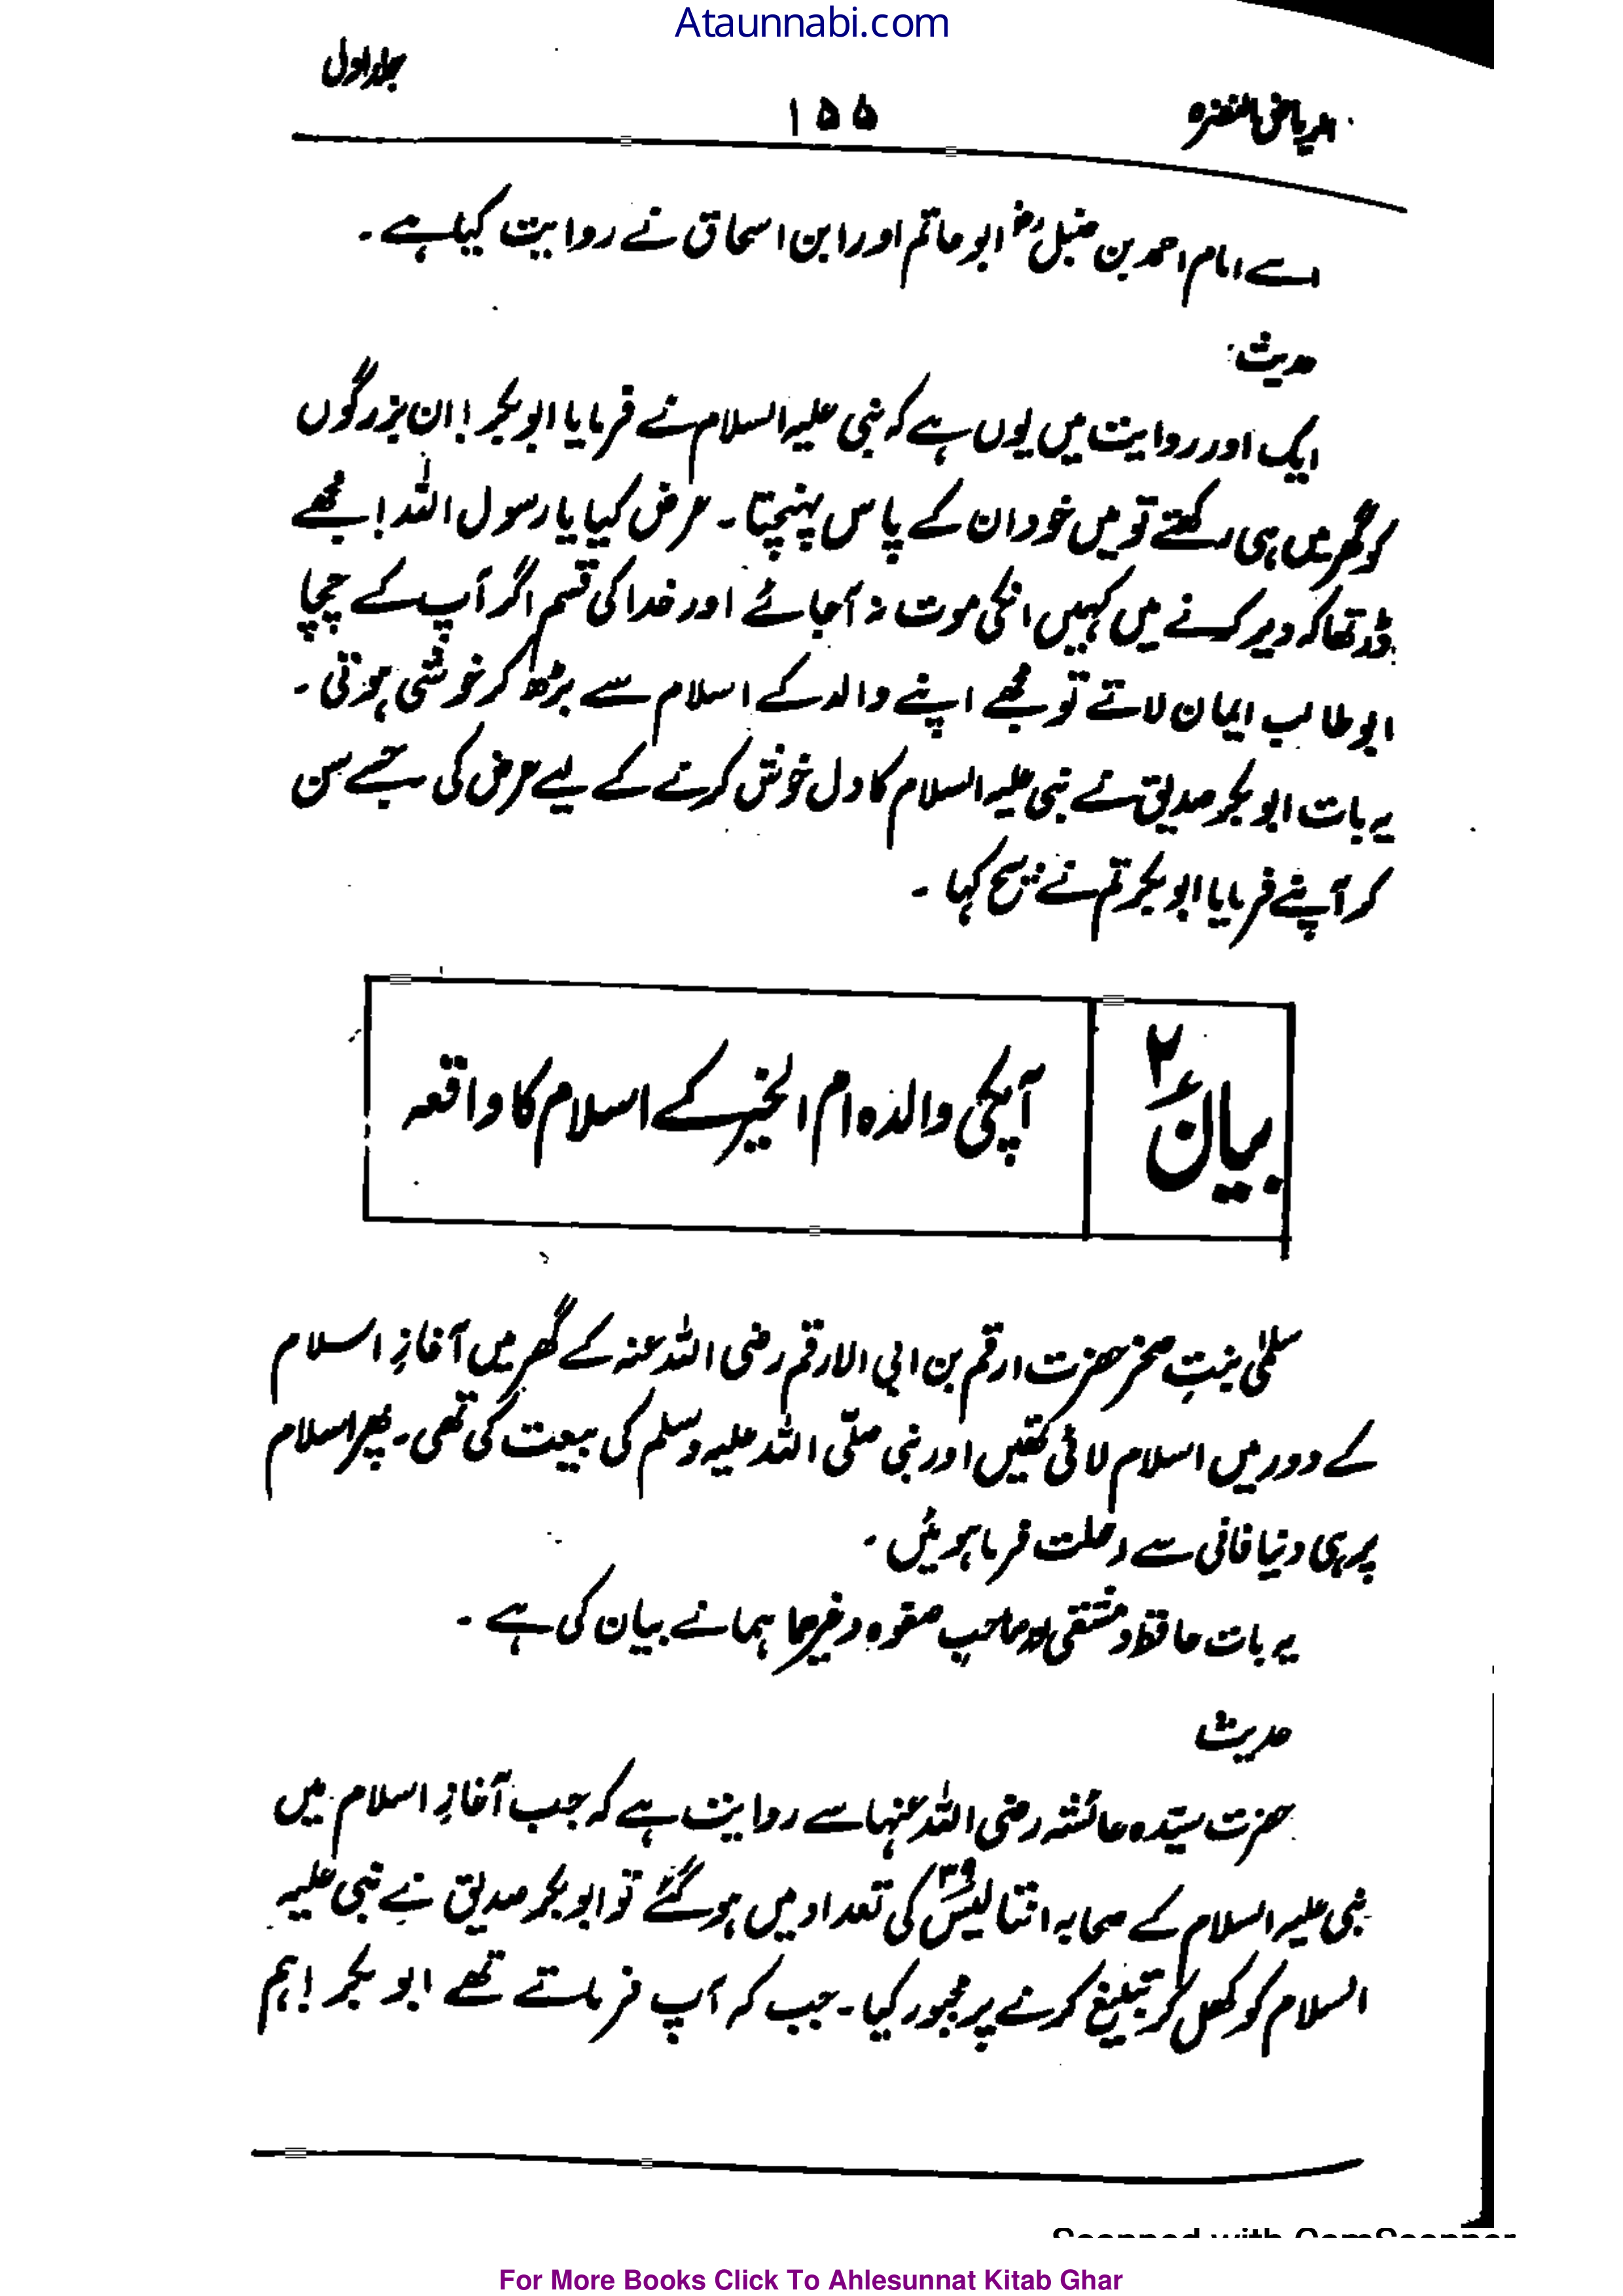 Ataunnabi.com
جلد اول
۱۵۵
الریاض النضرہ
اسے امام احمد بن حنبلؓ ابو حاتم اور ابن اسحاق نے روایت کیا ہے۔
حدیث:
ایک اور روایت میں یوں ہے کہ نبی علیہ السلام نے فرمایا ابو بکر! ان بزرگوں
کو گھر میں ہی رکھتے تو میں خود ان کے پاس پہنچتا۔ عرض کیا یا رسول اللہ! مجھے
ڈر تھا کہ دیر کرنے میں کہیں انکی موت نہ آجائے اور خدا کی قسم اگر آپ کے چچا
ابو طالب ایمان لاتے تو مجھے اپنے والد کے اسلام سے بڑھ کر خوشی ہوتی۔
یہ بات ابو بکر صدیق نے نبی علیہ السلام کا دل خوش کرنے کے لیے عرض کی جسے سن
کر آپنے فرمایا ابو بکر تم نے سچ کہا۔
بیان ۲
آپکی والدہ ام الخیر کے اسلام کا واقعہ
سلمٰی بنتِ صخر حضرت ارقم بن ابی الارقم رضی اللہ عنہ کے گھر میں آغازِ اسلام
کے دور میں اسلام لائی تھیں اور نبی صلّی اللہ علیہ وسلم کی بیعت کی تھی۔ پھر اسلام
پر ہی دنیا فانی سے رحلت فرما ہوئیں۔
یہ بات حافظ دمشقی صاحبِ صفوہ وغیرہما نے بیان کی ہے۔
حدیث
حضرت سیّدہ عائشہ رضی اللہ عنہا سے روایت ہے کہ جب آغازِ اسلام میں
نبی علیہ السلام کے صحابہ انتالیس ۳۹ کی تعداد میں ہو گئے تو ابو بکر صدیق نے نبی علیہ
السلام کو کھل کر تبلیغ کرنے پر مجبور کیا۔ جب کہ آپ فرماتے تھے ابو بکر! ہم
Scanned with CamScanner
For More Books Click To Ahlesunnat Kitab Ghar